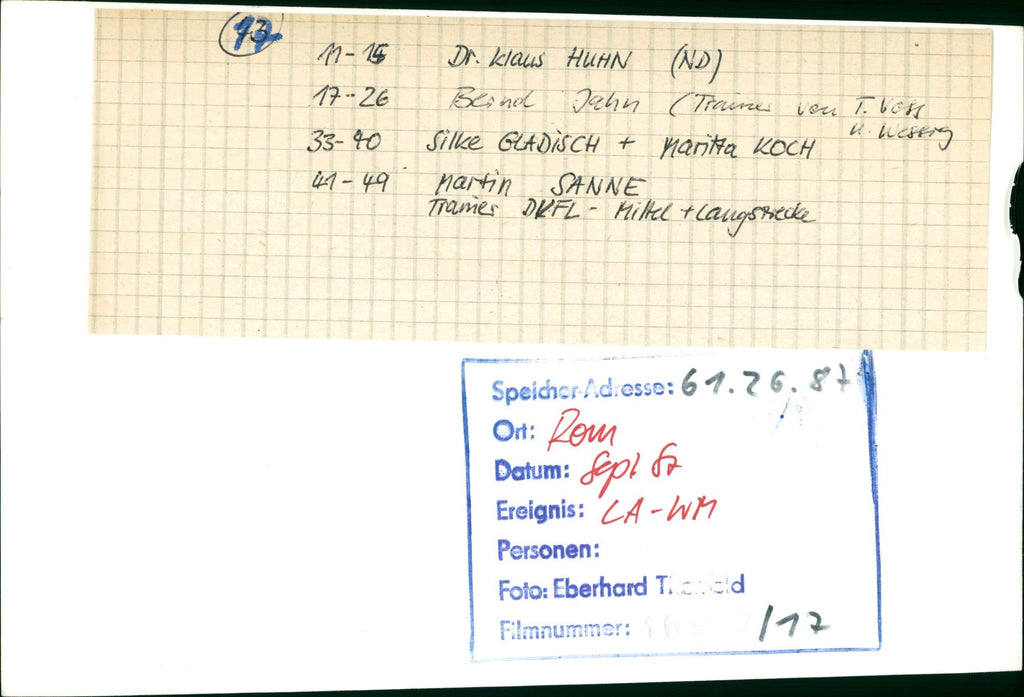 17
11-15 Dr. Klaus HUHN (ND)
17-26 Bernd Jahn (Trainer von T. Voss
u. Wessig
33-40 Silke GLADISCH + Marita KOCH
41-49 Martin SANNE
Trainer DVFL - Mittel + Langstrecke
Speicher-Adresse: 61.26.87
Ort: Rom
Datum: Sept 87
Ereignis: LA-WM
Personen:
Foto: Eberhard
Filmnummer: /17